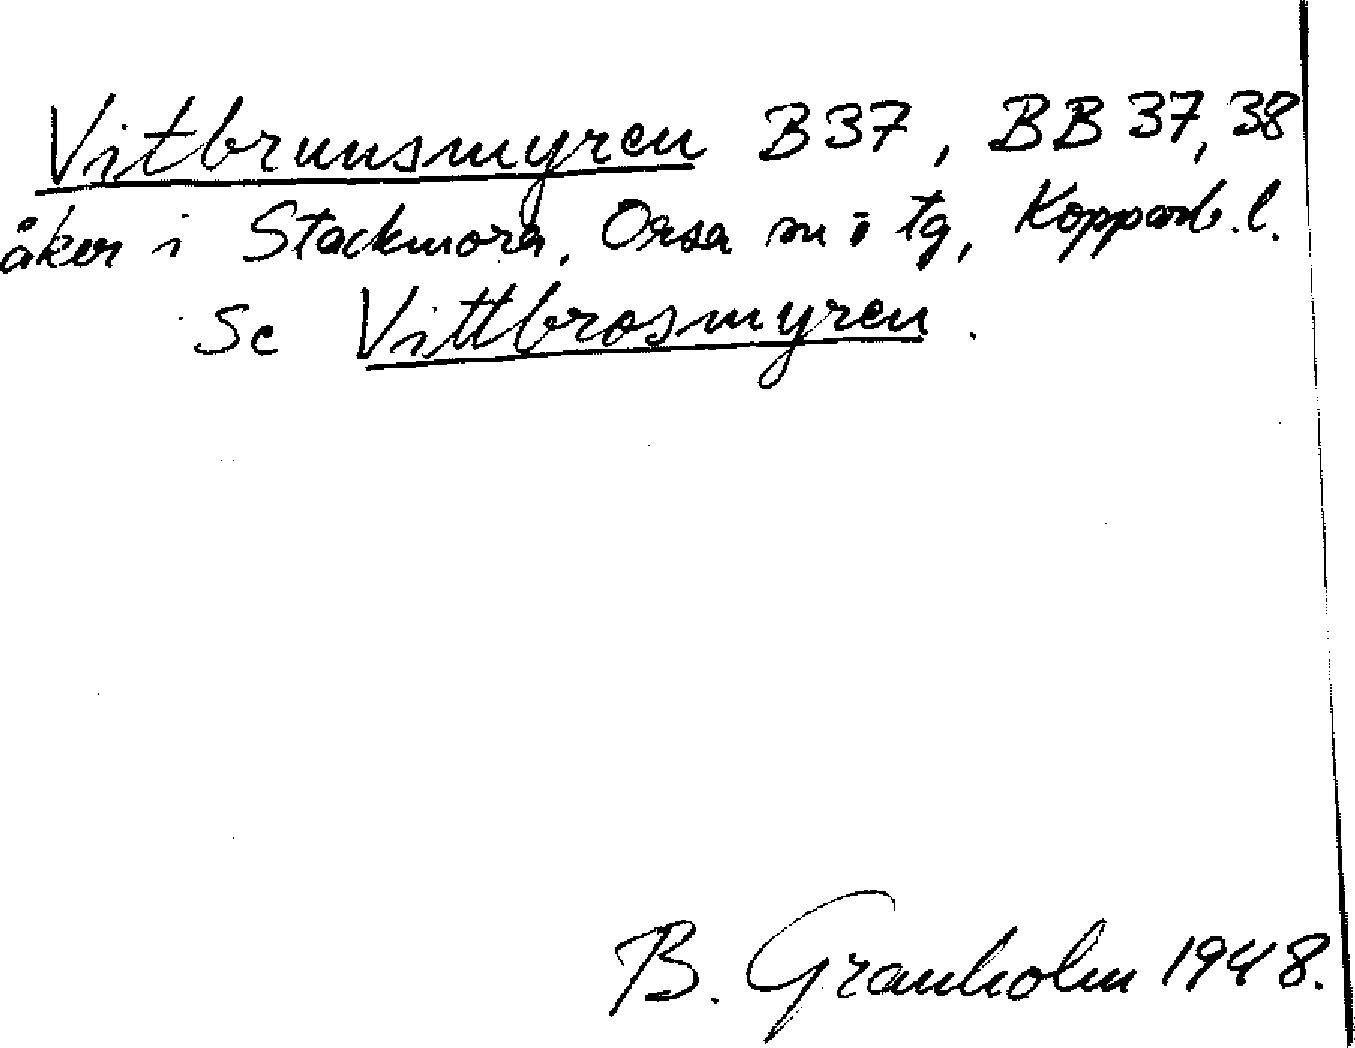 Vitbrunsmyren B37, BB 37, 38
åker i Stackmora, Orsa sn o tg, Kopparb. l.
Se Vittbrosmyren.
B. Granholm 1948.